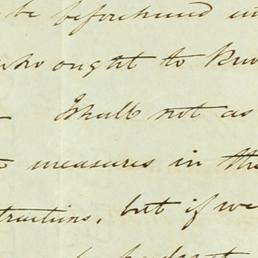 be beforehand in
who ought to know
I shall not as
measures in the
tructions, but if we